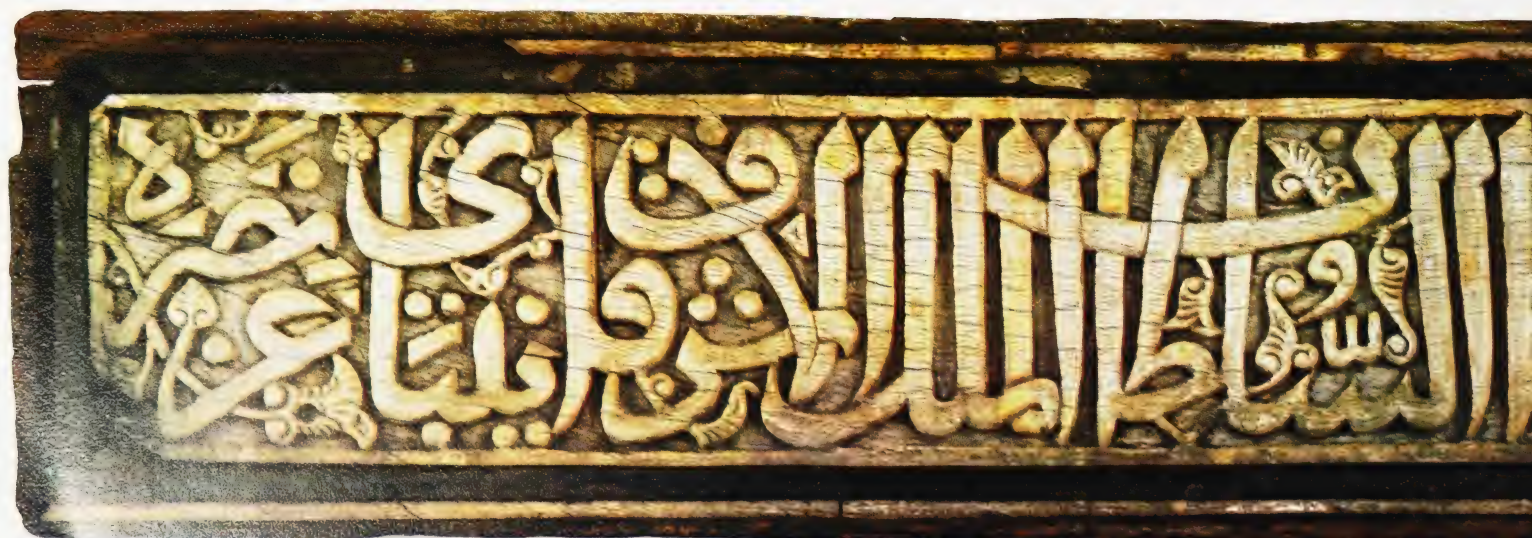 السلطان الملك الاشرف قايتباى عز نصره